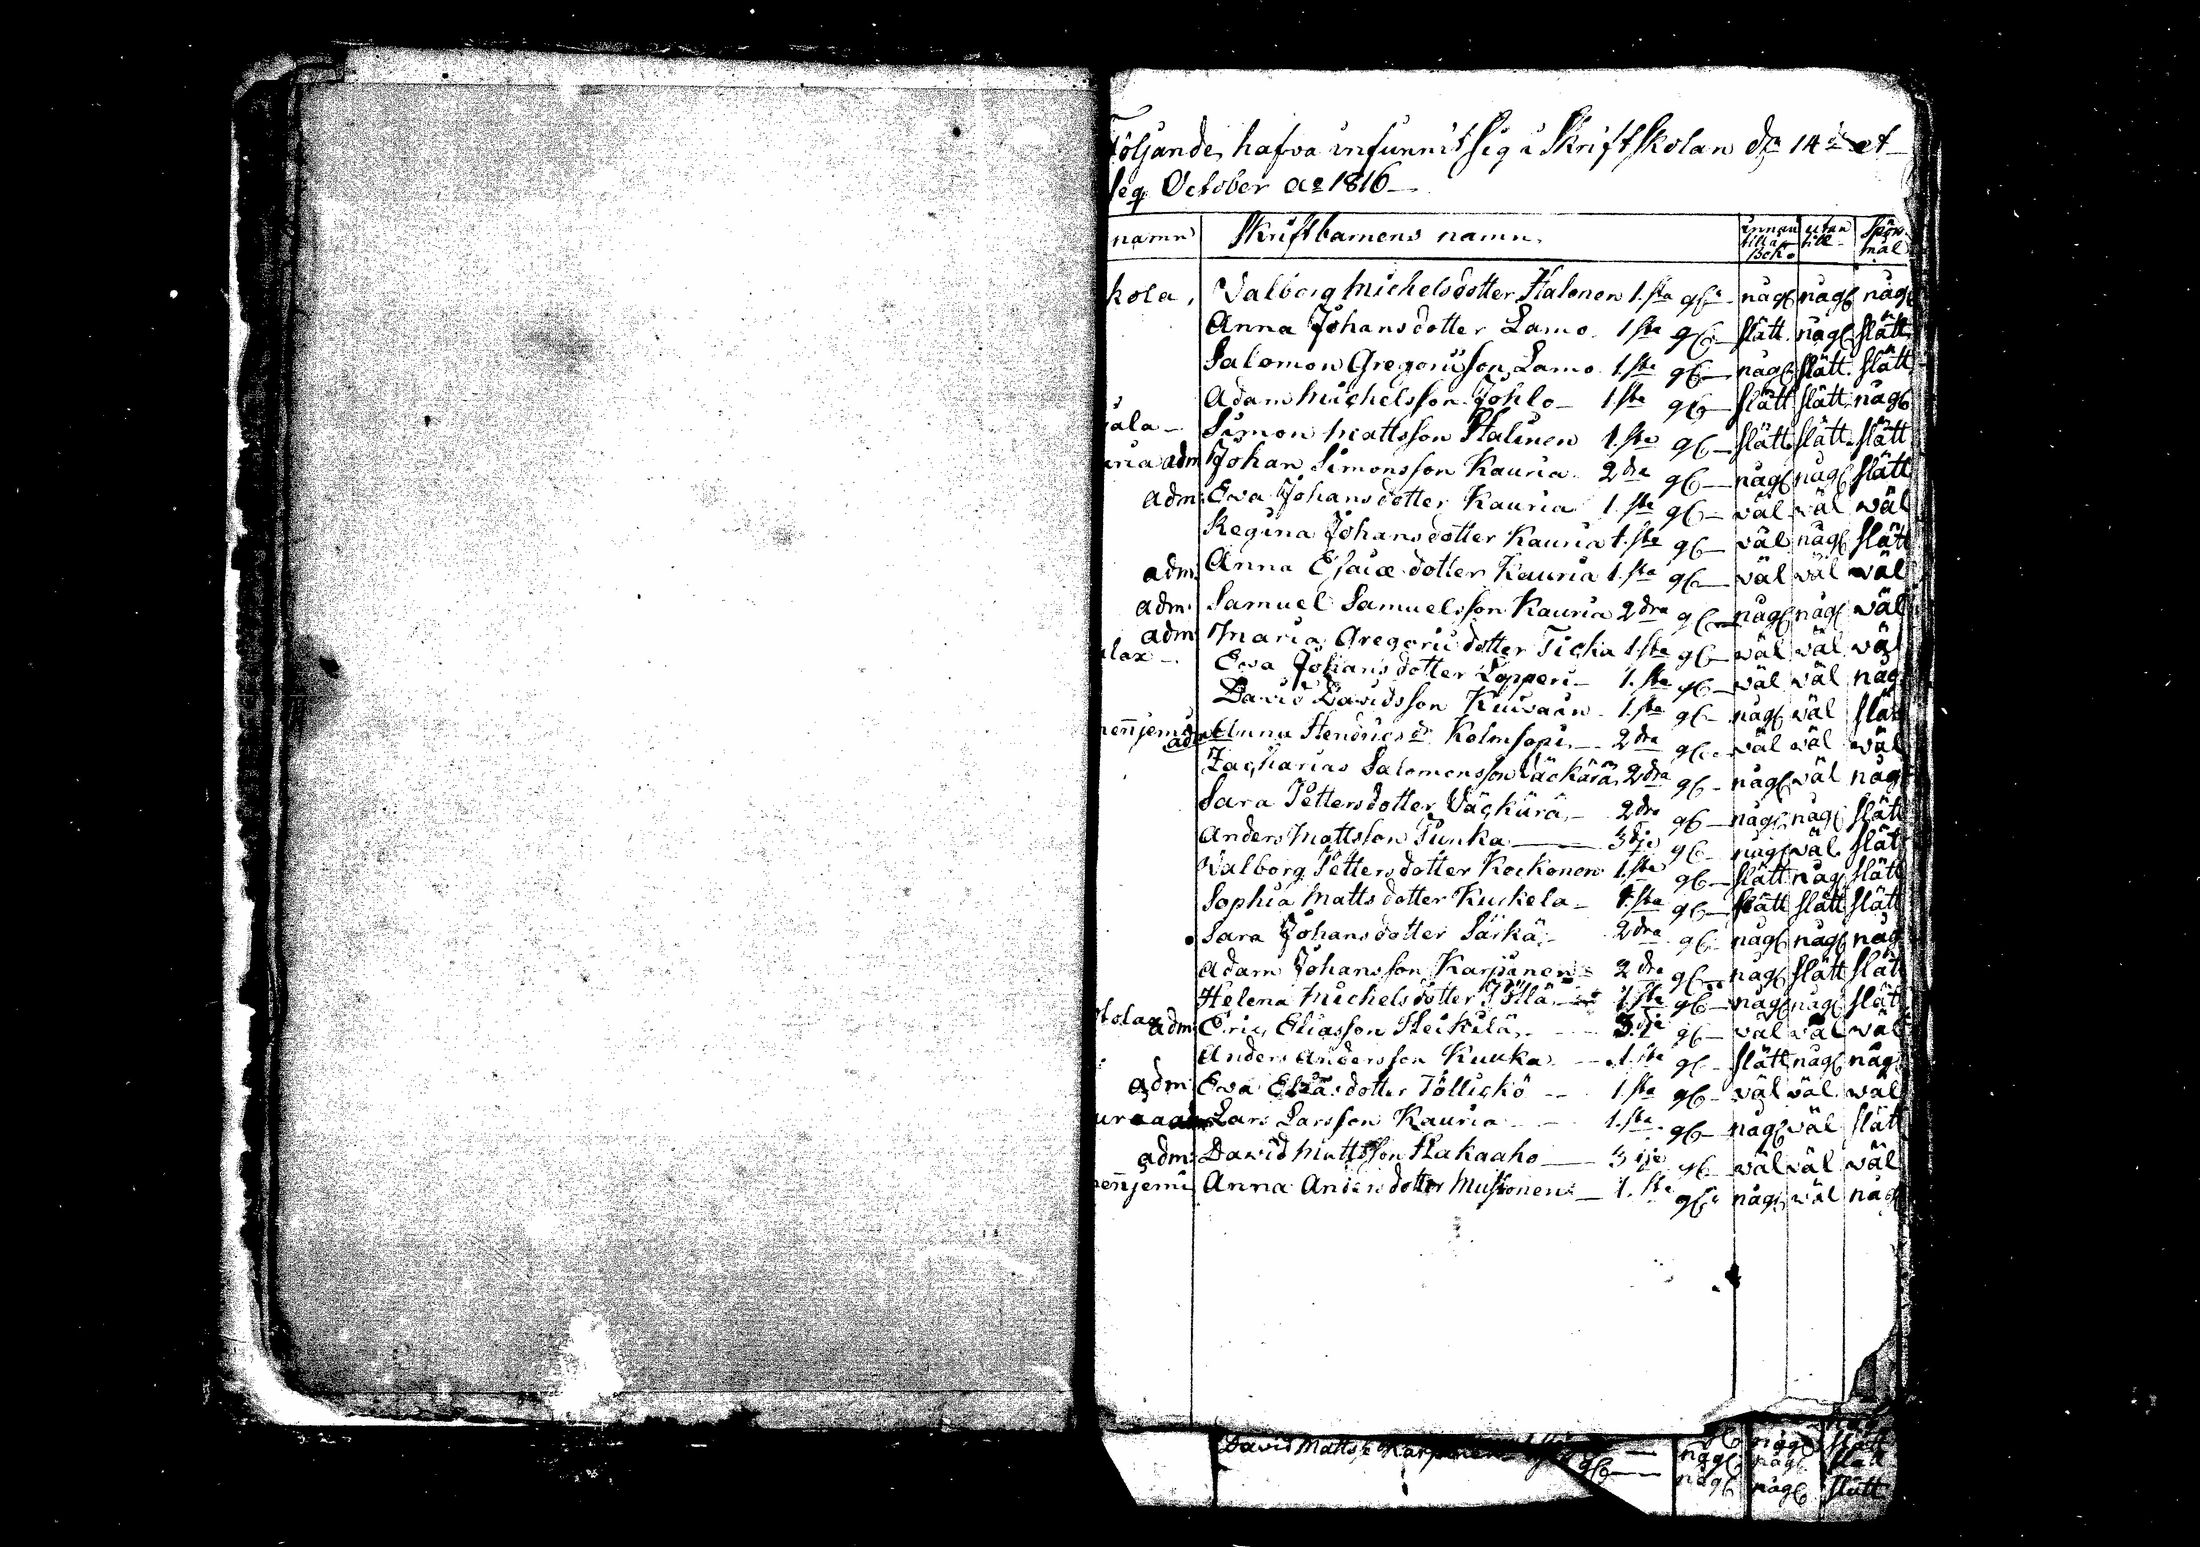 Följande hafva infunnit sig i Skriftskolan d. 14 et
seq October ao 1816
namn Skriftbarnens namn. innan till a Bok. utan till Spörs mål
kola, Valborg Michelsdotter Halonen 1.sta gg någ någ någ
Anna Johansdotter Lamo 1sta gg slätt någ slätt
Salomon Gregorisson Lamo 1.sta gg någ slätt slätt
Adam Michelsson Johlo 1sta gg slätt slätt någ
ala Simon Mattsson Halinen 1.sta gg slätt slätt slätt
uria adm Johan Simonsson Kauria 2dra gg någ någ slätt
adm: Eva Johansdotter Kauria 1.sta gg väl väl wäl
Regina Johansdotter Kauria 1.sta gg väl någ slätt
adm. Anna Esaiæ dotter Kauria 1.sta gg väl väl wäl
adm. Samuel Samuelsson Kauria 2dra gg någ någ wäl
adm Maria Gregorii dotter Ticka 1.sta gg väl väl väl
lax Eva Johansdotter Lopperi 1.sta gg väl väl någ
David Davidsson 1.sta gg någ väl slätt
nenjemi adm Anna Hendricsdr Kolmsopi 2dra gg väl väl wäl
Zacharias Salomonsson Väckärä 2dra gg någ väl någ
Sara Pettersdotter Väckärä 2dra gg någ någ slätt
Anders Mattsson Punka 3dje gg någ väl slätt
Valborg Pettersdotter Kockonen 1.sta gg slätt någ slätt
Sophia Mattsdotter Kuckela 1.sta gg slätt slätt slätt
Sara Johansdotter Särkä 2dra gg någ någ någ
Adam Johansson Karpinen 2dra gg någ slätt slätt
Helena Michelsdotter 1.sta gg någ någ slätt
tolax adm: Eric Eliasson Heikilä 3dje gg väl väl wäl
Anders Andersson Kuuka 1.sta gg slätt någ någ
adm Eva Eliasdotter Töllickö 1.sta gg väl väl wäl
Lars Larsson Kauria 1.sta gg någ väl slätt
adm: David Mattsson Hakaaho 3dje gg väl väl wäl
enjemi Anna Andersdotter Mustonen 1.sta gg någ väl någ
David Matts. Karpinen gg någ någ slätt
någ någ slätt
någ någ slätt